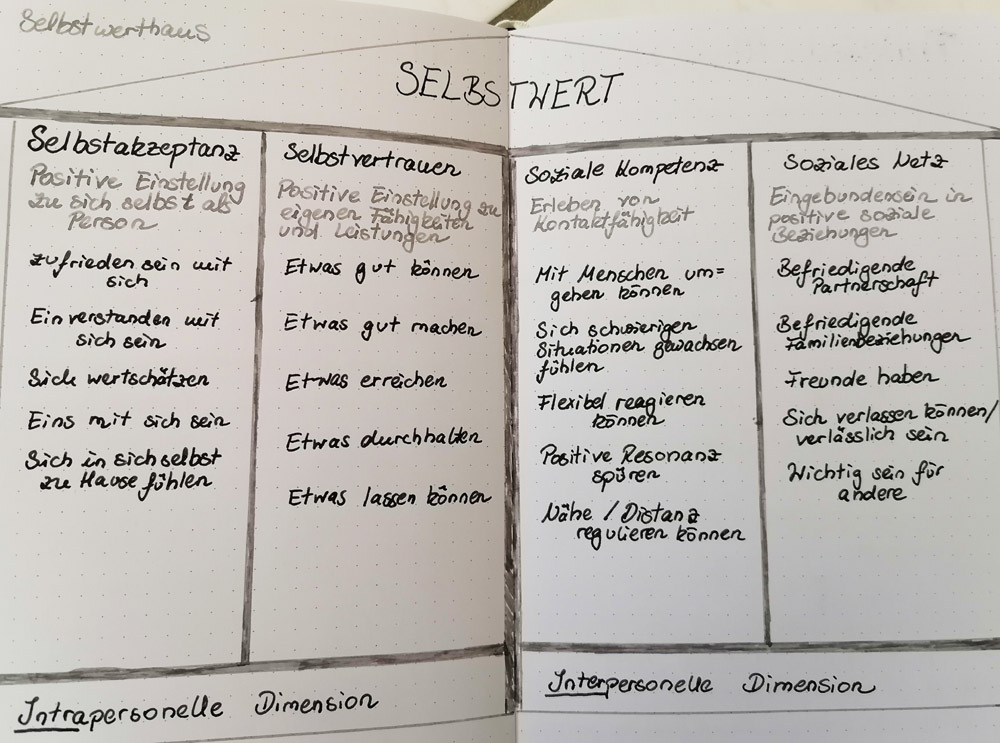 Selbstwerthaus
SELBSTWERT
Selbstakzeptanz
Positive Einstellung
zu sich selbst als
Person
zufrieden sein mit
sich
Einverstanden mit
sich sein
Sich wertschätzen
Eins mit sich sein
Sich in sich selbst
zu Hause fühlen
Selbstvertrauen
Positive Einstellung zu
eigenen Fähigkeiten
und Leistungen
Etwas gut können
Etwas gut machen
Etwas erreichen
Etwas durchhalten
Etwas lassen können
Soziale Kompetenz
Erleben von
Kontaktfähigkeit
Mit Menschen um=
gehen können
Sich schwierigen
Situationen gewachsen
fühlen
Flexibel reagieren
können
Positive Resonanz
spüren
Nähe / Distanz
regulieren können
Soziales Netz
Eingebundensein in
positive soziale
Beziehungen
Befriedigende
Partnerschaft
Befriedigende
Familienbeziehungen
Freunde haben
Sich verlassen können/
verlässlich sein
Wichtig sein für
andere
Intrapersonelle Dimension
Interpersonelle Dimension